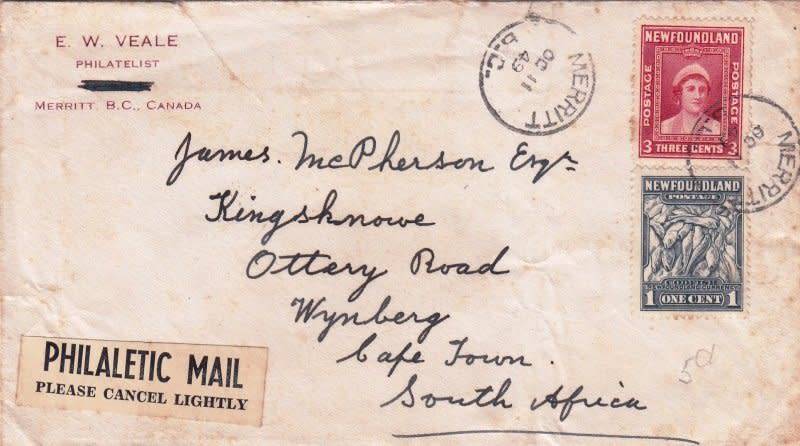 E. W. VEALE
PHILATELIST
MERRITT, B.C., CANADA
MERRITT
OC 11
49
B.C.
NEWFOUNDLAND
POSTAGE
POSTAGE
3 THREE CENTS 3
MERRITT
OC
NEWFOUNDLAND
POSTAGE
CODFISH
NEWFOUNDLAND CURRENCY
1 ONE CENT 1
James. McPherson Esqr
Kingsknowe
Ottery Road
Wynberg
Cape Town.
South Africa
PHILALETIC MAIL
PLEASE CANCEL LIGHTLY